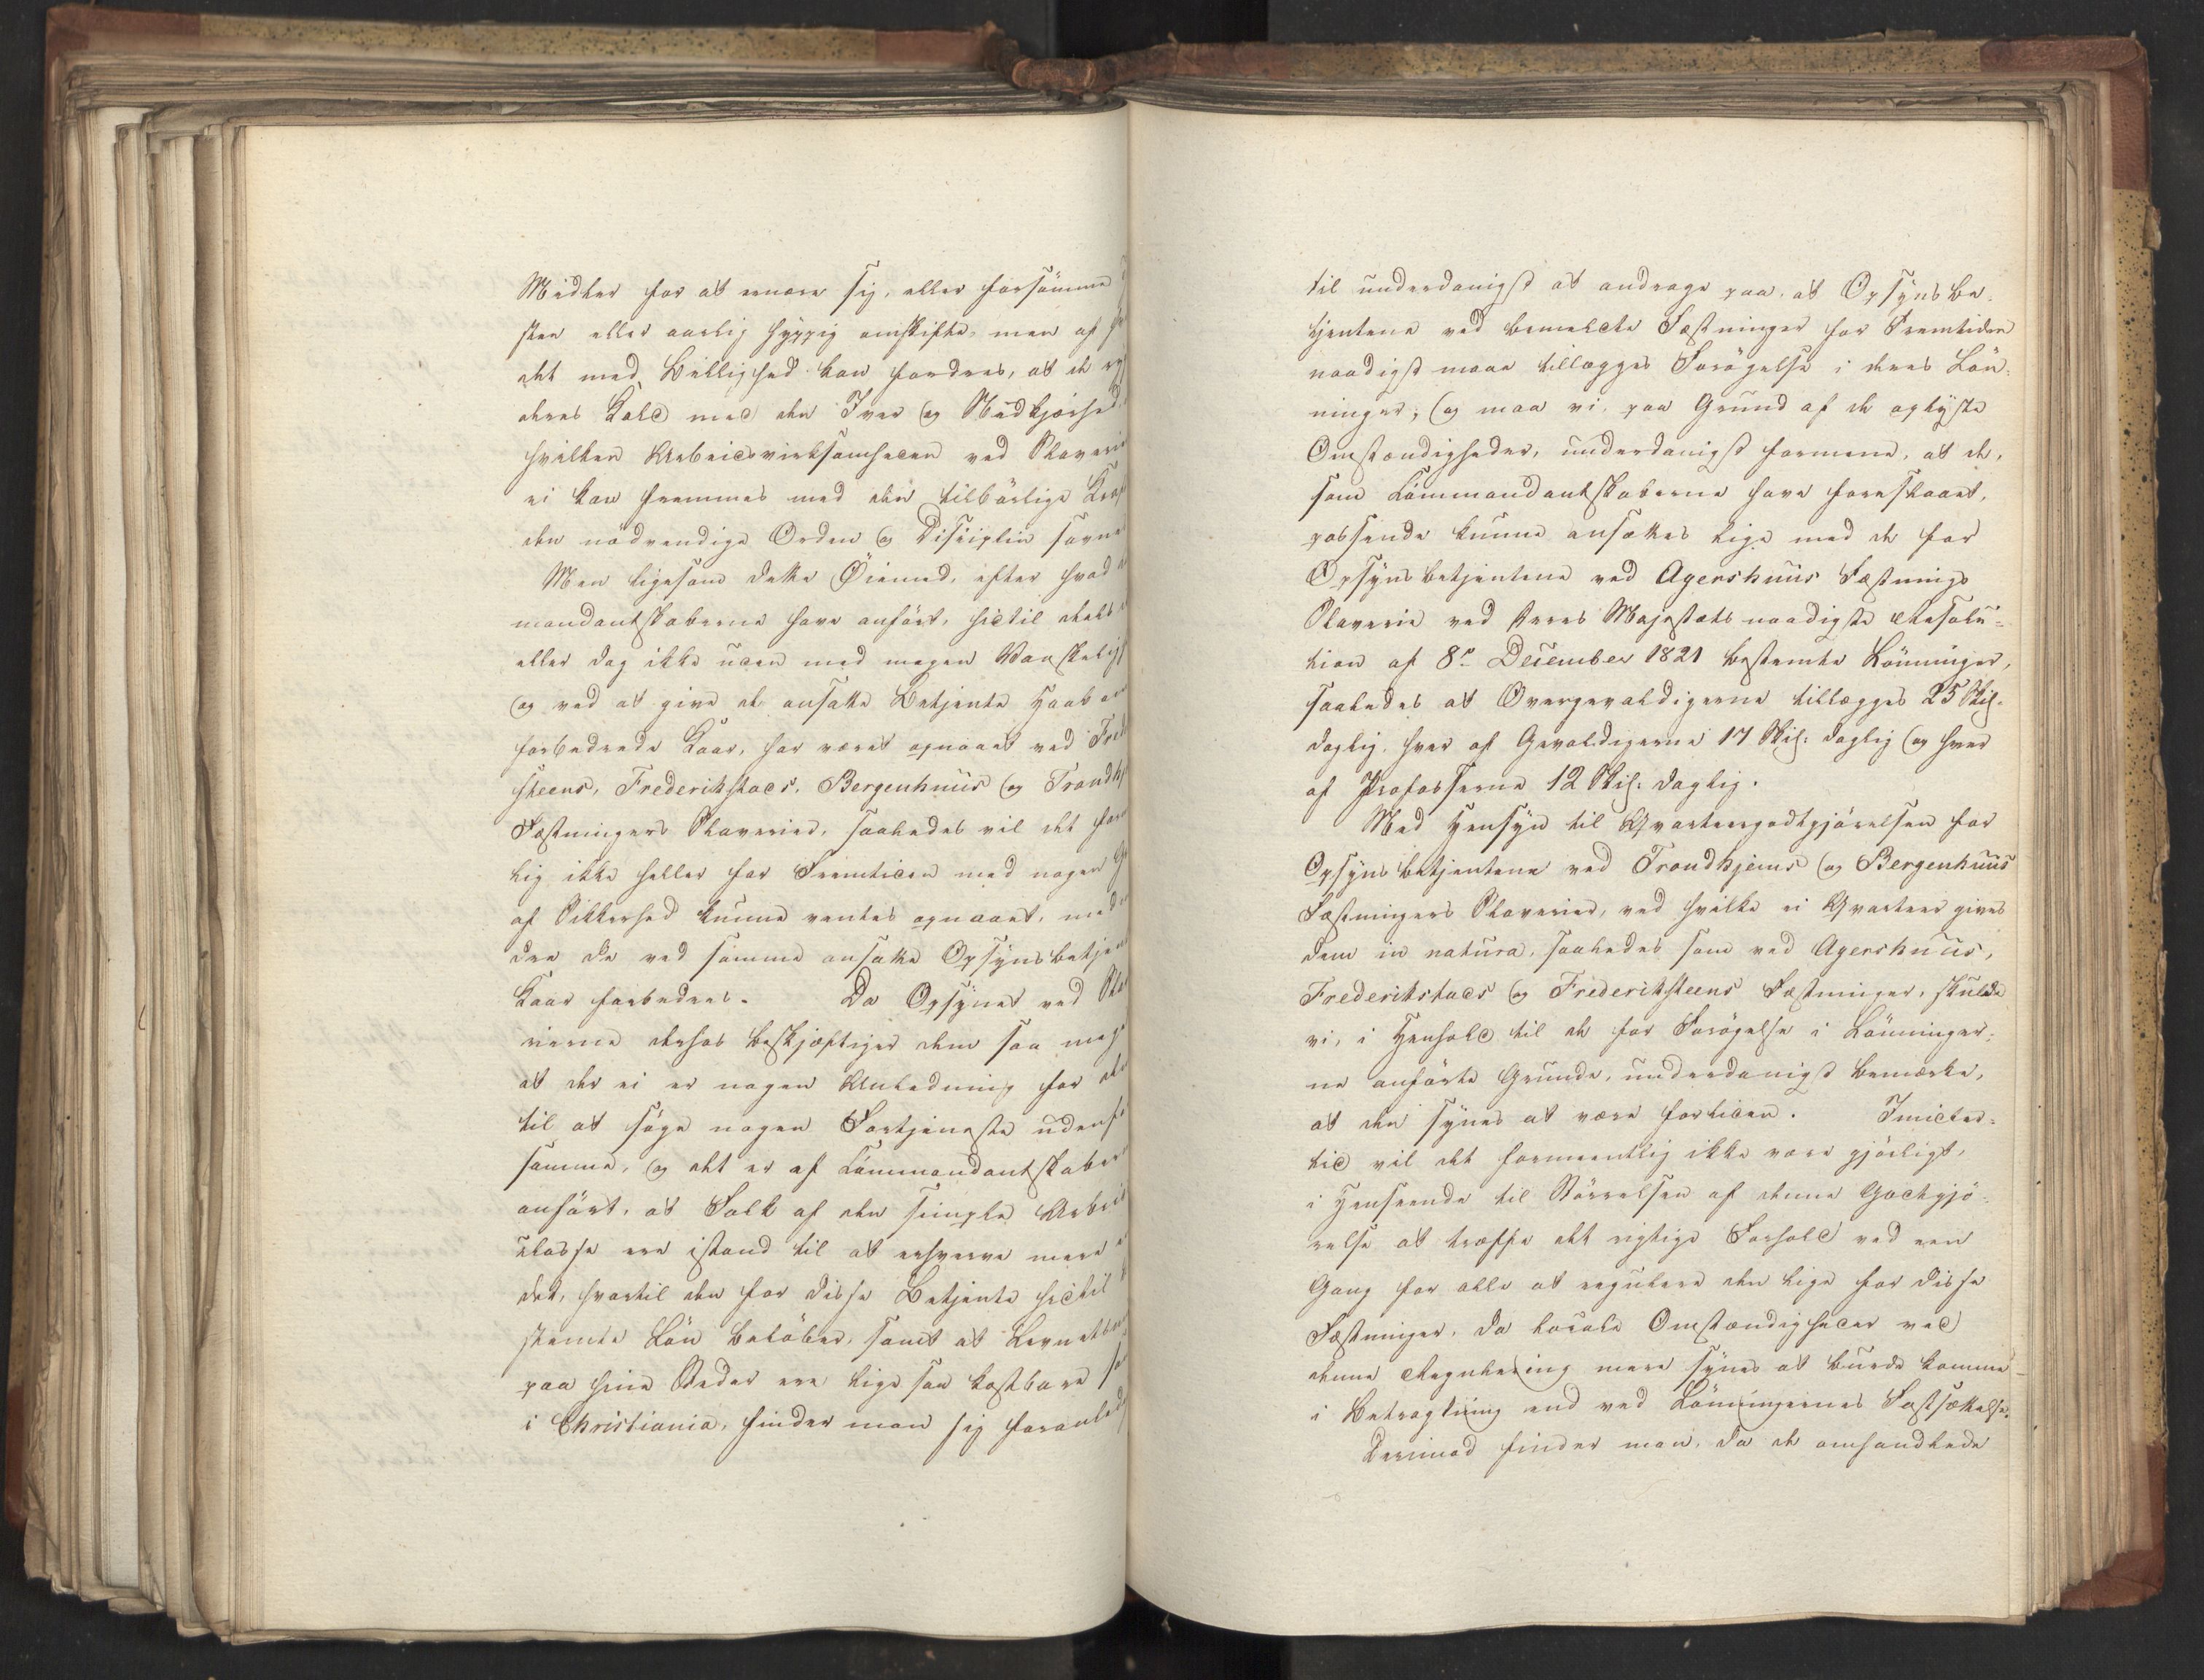 Midler for at ernære sig, eller forsömme
sten eller aarlig hyppig omskifte, men af
det med Billighed kan fordres, at de
deres Kald med den Iver og Nidkjærhed,
hvilken Arbeidsvirksomheden ved Slaveri
ei kan fremmes med den tilbörlige Kraf
den nödvendige Orden og Disciplin savne
Men ligesom dette Öiemed, efter hvad
mandantskaberne have anført, hidtil deels
eller dog ikke uden med megen Vanskeligh
og ved at give de ansatte Betjente Haab om
forbedrede Kaar, har været opnaaet ved Fred
steens, Frederikstads, Bergenhuus og Trondh
Fæstningers Slaverier, saaledes vil det for
lig ikke heller for Fremtiden med nogen G
af Sikkerhed kunne ventes opnaaet, med
dre de ved samme ansatte Opsynsbetjen
Kaar forbedres. Da Opsynet ved Sla
rierne derhos beskjæftiger dem saa meg
at der ei er nogen Anledning for de
til at söge nogen Fortjeneste udenf
samme, og det er af Commandantskaber
anfört, at Folk af den simple Arbeid
classe ere istand til at erhverve mere
det, hvortil den for disse Betjente hidtil
stemte Lön belöber, samt at Levnets
paa hine Steder ere lige saa kostbare
i Christiania, finder man sig foranled
til underdanigst at andrage paa, at Opsynsbe-
tjentene ved bemeldte Fæstninger for Fremtiden
naadigst maae tillægges Forögelse i deres Lön-
ninger; og maa vi, paa Grund af de oplyste
Omstændigheder, underdanigst formene, at de,
som Commandantskaberne have foreslaaet,
passende kunne ansættes lige med de for
Opsynsbetjentene ved Agershuus Fæstnings
Slaverie ved Deres Majestæts naadigste Resolu-
tion af 8de December 1821 bestemte Lönninger,
saaledes at Overgevaldigerne tillægges 25 Skil.
daglig, hver af Gevaldigerne 17 Skil: daglig og hver
af Profosserne 12 Skil: daglig.
Med Hensyn til Qvarteergodtgjörelsen for
Opsynsbetjentene ved Trondhjems og Bergenhuus
Fæstningers Slaverier, ved hvilke ei Qvarteer gives
dem in natura, saaledes som ved Agershuus,
Frederikstads og Frederiksteens Fæstninger, skulde
vi, i Henhold til de for Forögelse i Lönninger-
ne anförte Grunde, underdanigst bemærke,
at den synes at være for liden. Imidler-
tid vil det formeentlig ikke være gjörligt,
i Henseende til Störrelsen af denne Godtgjö-
relse at træffe det rigtige Forhold ved een
Gang for alle at regulere den lige for disse
Fæstninger, da locale Omstændigheder ved
denne Regulering mere synes at burde komme
i Betragtning end ved Lönningernes Fastsættelse.
Derimod finder man, da de omhandlede